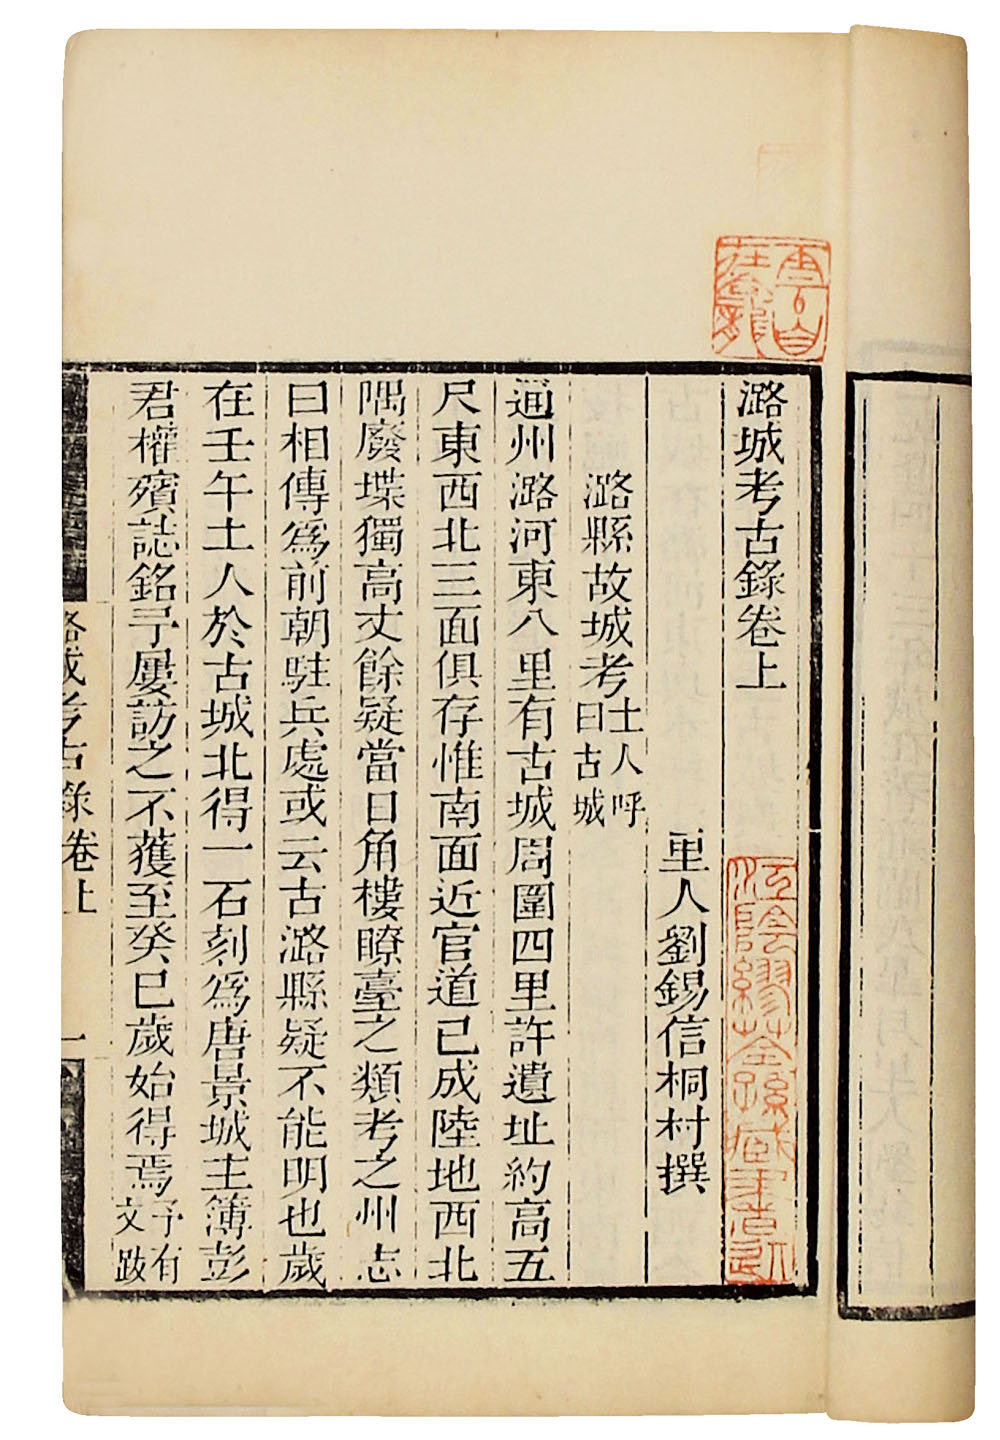 潞城考古錄卷上
里人劉錫信桐村撰
潞縣故城考土人呼曰古城
通州潞河東八里有古城周圍四里許遺址約高五
尺東西北三面俱存惟南面近官道已成陸地西北
隅廢堞獨高丈餘疑當日角樓瞭臺之類考之州志
曰相傳爲前朝駐兵處或云古潞縣疑不能明也歲
在壬午土人於古城北得一石刻爲唐景城主簿彭
君權殯誌銘予屢訪之不獲至癸巳歲始得焉予有文跋
潞城考古錄卷上
一
雲自在龕
江陰繆荃孫藏書處